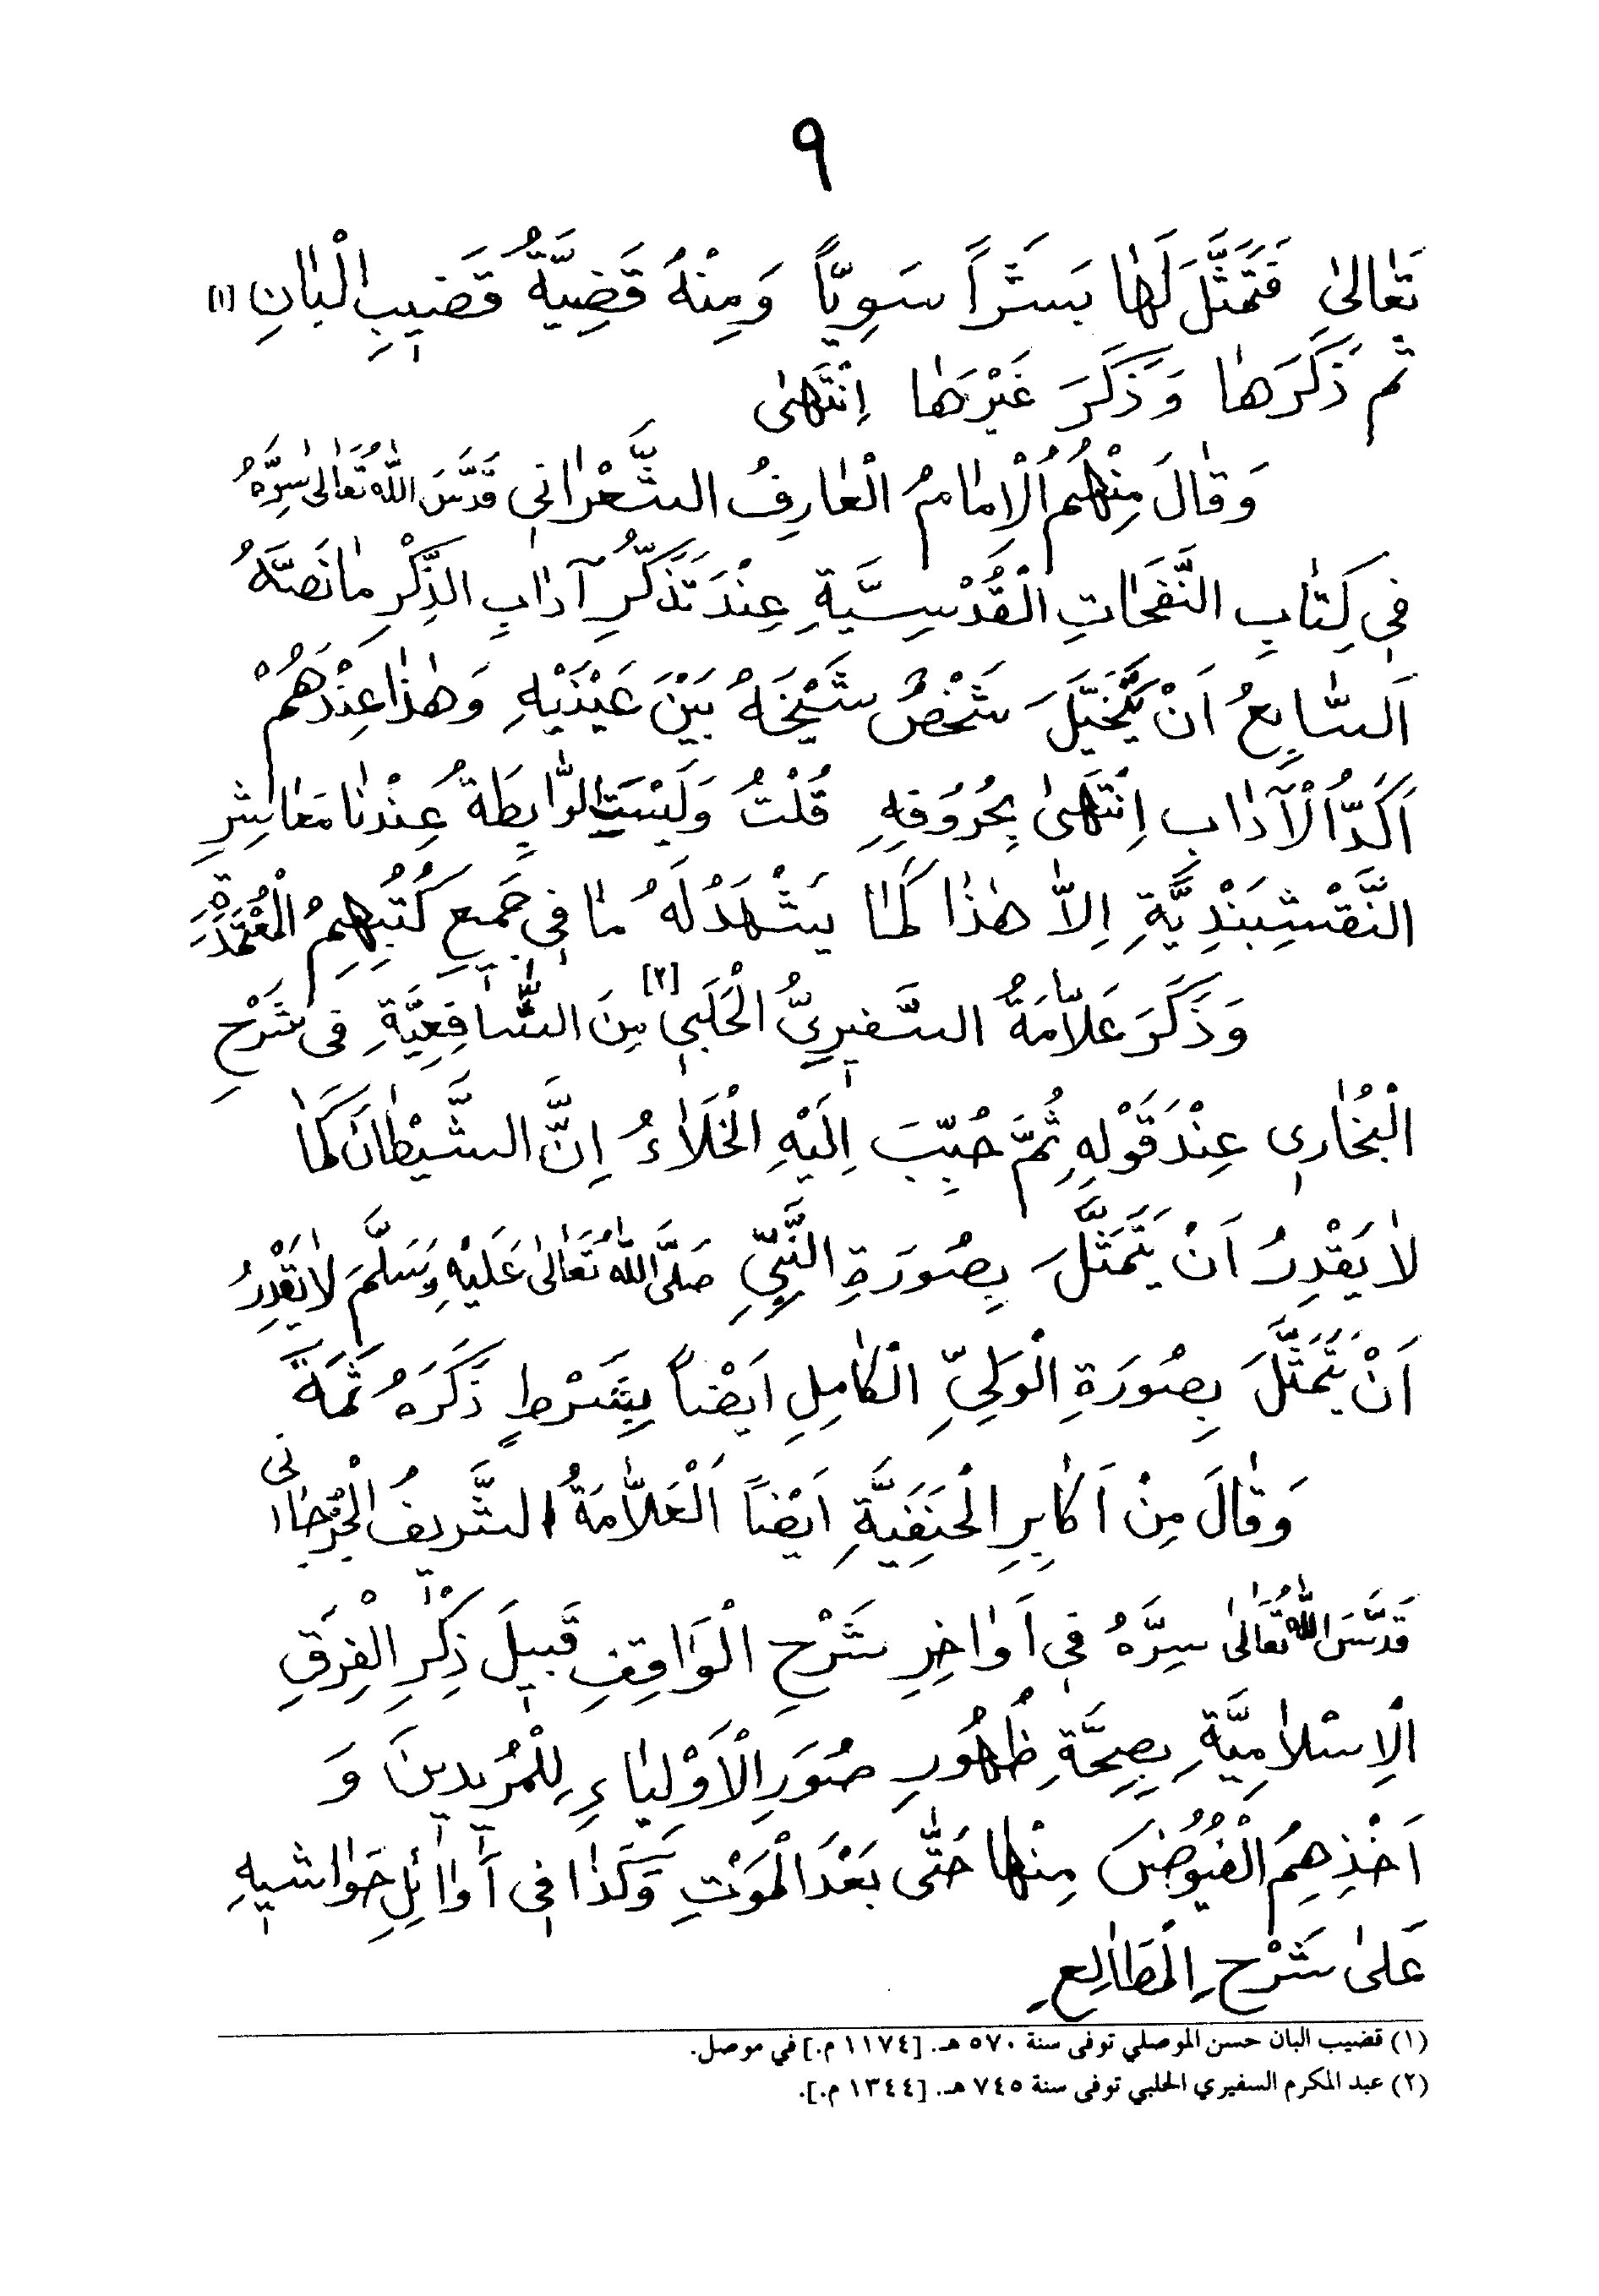 ٩
تَعٰالىٰ فَتَمَثَّلَ لَهٰا بَشَراً سَوِيّاً وَمِنْهُ قَضِيَّةُ قَضيبِ الْبٰانِ (١)
ثم ذَكَرَهٰا وَذَكَرَ غَيْرَهٰا اِنْتَهىٰ
وَقٰالَ مِنْهُمُ الْاِمٰامُ الْعٰارِفُ الشَّعْرٰانى قَدَّسَ اللّٰهُ تَعٰالىٰ سِرَّهُ
فى كِتٰابِ النَّفَحٰاتِ الْقُدْسِيَّةِ عِنْدَ تَذَكُّرِ آدٰابِ الذِّكْرِ مٰا نَصَّهُ
اَلسّٰابِعُ اَنْ يُخَيِّلَ شَخْصُ شَيْخَهُ بَيْنَ عَيْنَيْهِ وَهٰذٰا عِنْدَهُمْ
اَكَدُّ الْآدٰابِ اِنْتَهىٰ بِحُرُوفِهِ قُلْتُ وَلَيْسَتِ الرّٰابِطَةُ عِنْدَنٰا مَعٰاشِرِ
النَّقْشِبَنْدِيَّةِ اِلاّٰ هٰذٰا كَمٰا يَشْهَدُ لَهُ مٰا فى جَميعِ كُتُبِهِمُ الْمُعْتَمَدَةِ
وَذَكَرَ عَلاّٰمَةُ السَّفيرِيُّ الْحَلَبى [٢] مِنَ الشّٰافِعِيَّةِ فى شَرْحِ
الْبُخٰارى عِنْدَ قَوْلِهِ ثُمَّ حُبِّبَ اِلَيْهِ الْخَلٰاءُ اِنَّ الشَّيْطٰانَ كَمٰا
لٰا يَقْدِرُ اَنْ يَتَمَثَّلَ بِصُورَةِ النَّبِيِّ صَلَّى اللّٰهُ تَعٰالىٰ عَلَيْهِ وَسَلَّمَ لٰا يَقْدِرُ
اَنْ يَتَمَثَّلَ بِصُورَةِ الْوَلِيِّ الْكٰامِلِ اَيْضاً بِشَرْطٍ ذَكَرَهُ ثَمَّةَ
وَقٰالَ مِنْ اَكٰابِرِ الْحَنَفِيَّةِ اَيْضاً اَلْعَلاّٰمَةُ الشَّريفُ الْجُرْجٰانى
قَدَّسَ اللّٰهُ تَعٰالىٰ سِرَّهُ فى اَوٰاخِرِ شَرْحِ الْمَوٰاقِفِ قَبيلَ ذِكْرِ الْفِرَقِ
الْاِسْلٰامِيَّةِ بِصِحَّةِ ظُهُورِ صُوَرِ الْاَوْلِيٰاءِ لِلْمُريدينَ وَ
اَخْذِهِمُ الْفُيُوضَ مِنْهٰا حَتّٰى بَعْدَ الْمَوْتِ وَكَذٰا فى اَوٰائِلِ حَوٰاشيهِ
عَلىٰ شَرْحِ الْمَطٰالِعِ
(١) قضيب البان حسن الموصلي توفى سنة ٥٧٠ هـ. [١١٧٤ م.] في موصل.
(٢) عبد المكرم السفيري الحلبي توفى سنة ٧٤٥ هـ. [١٣٤٤ م.].